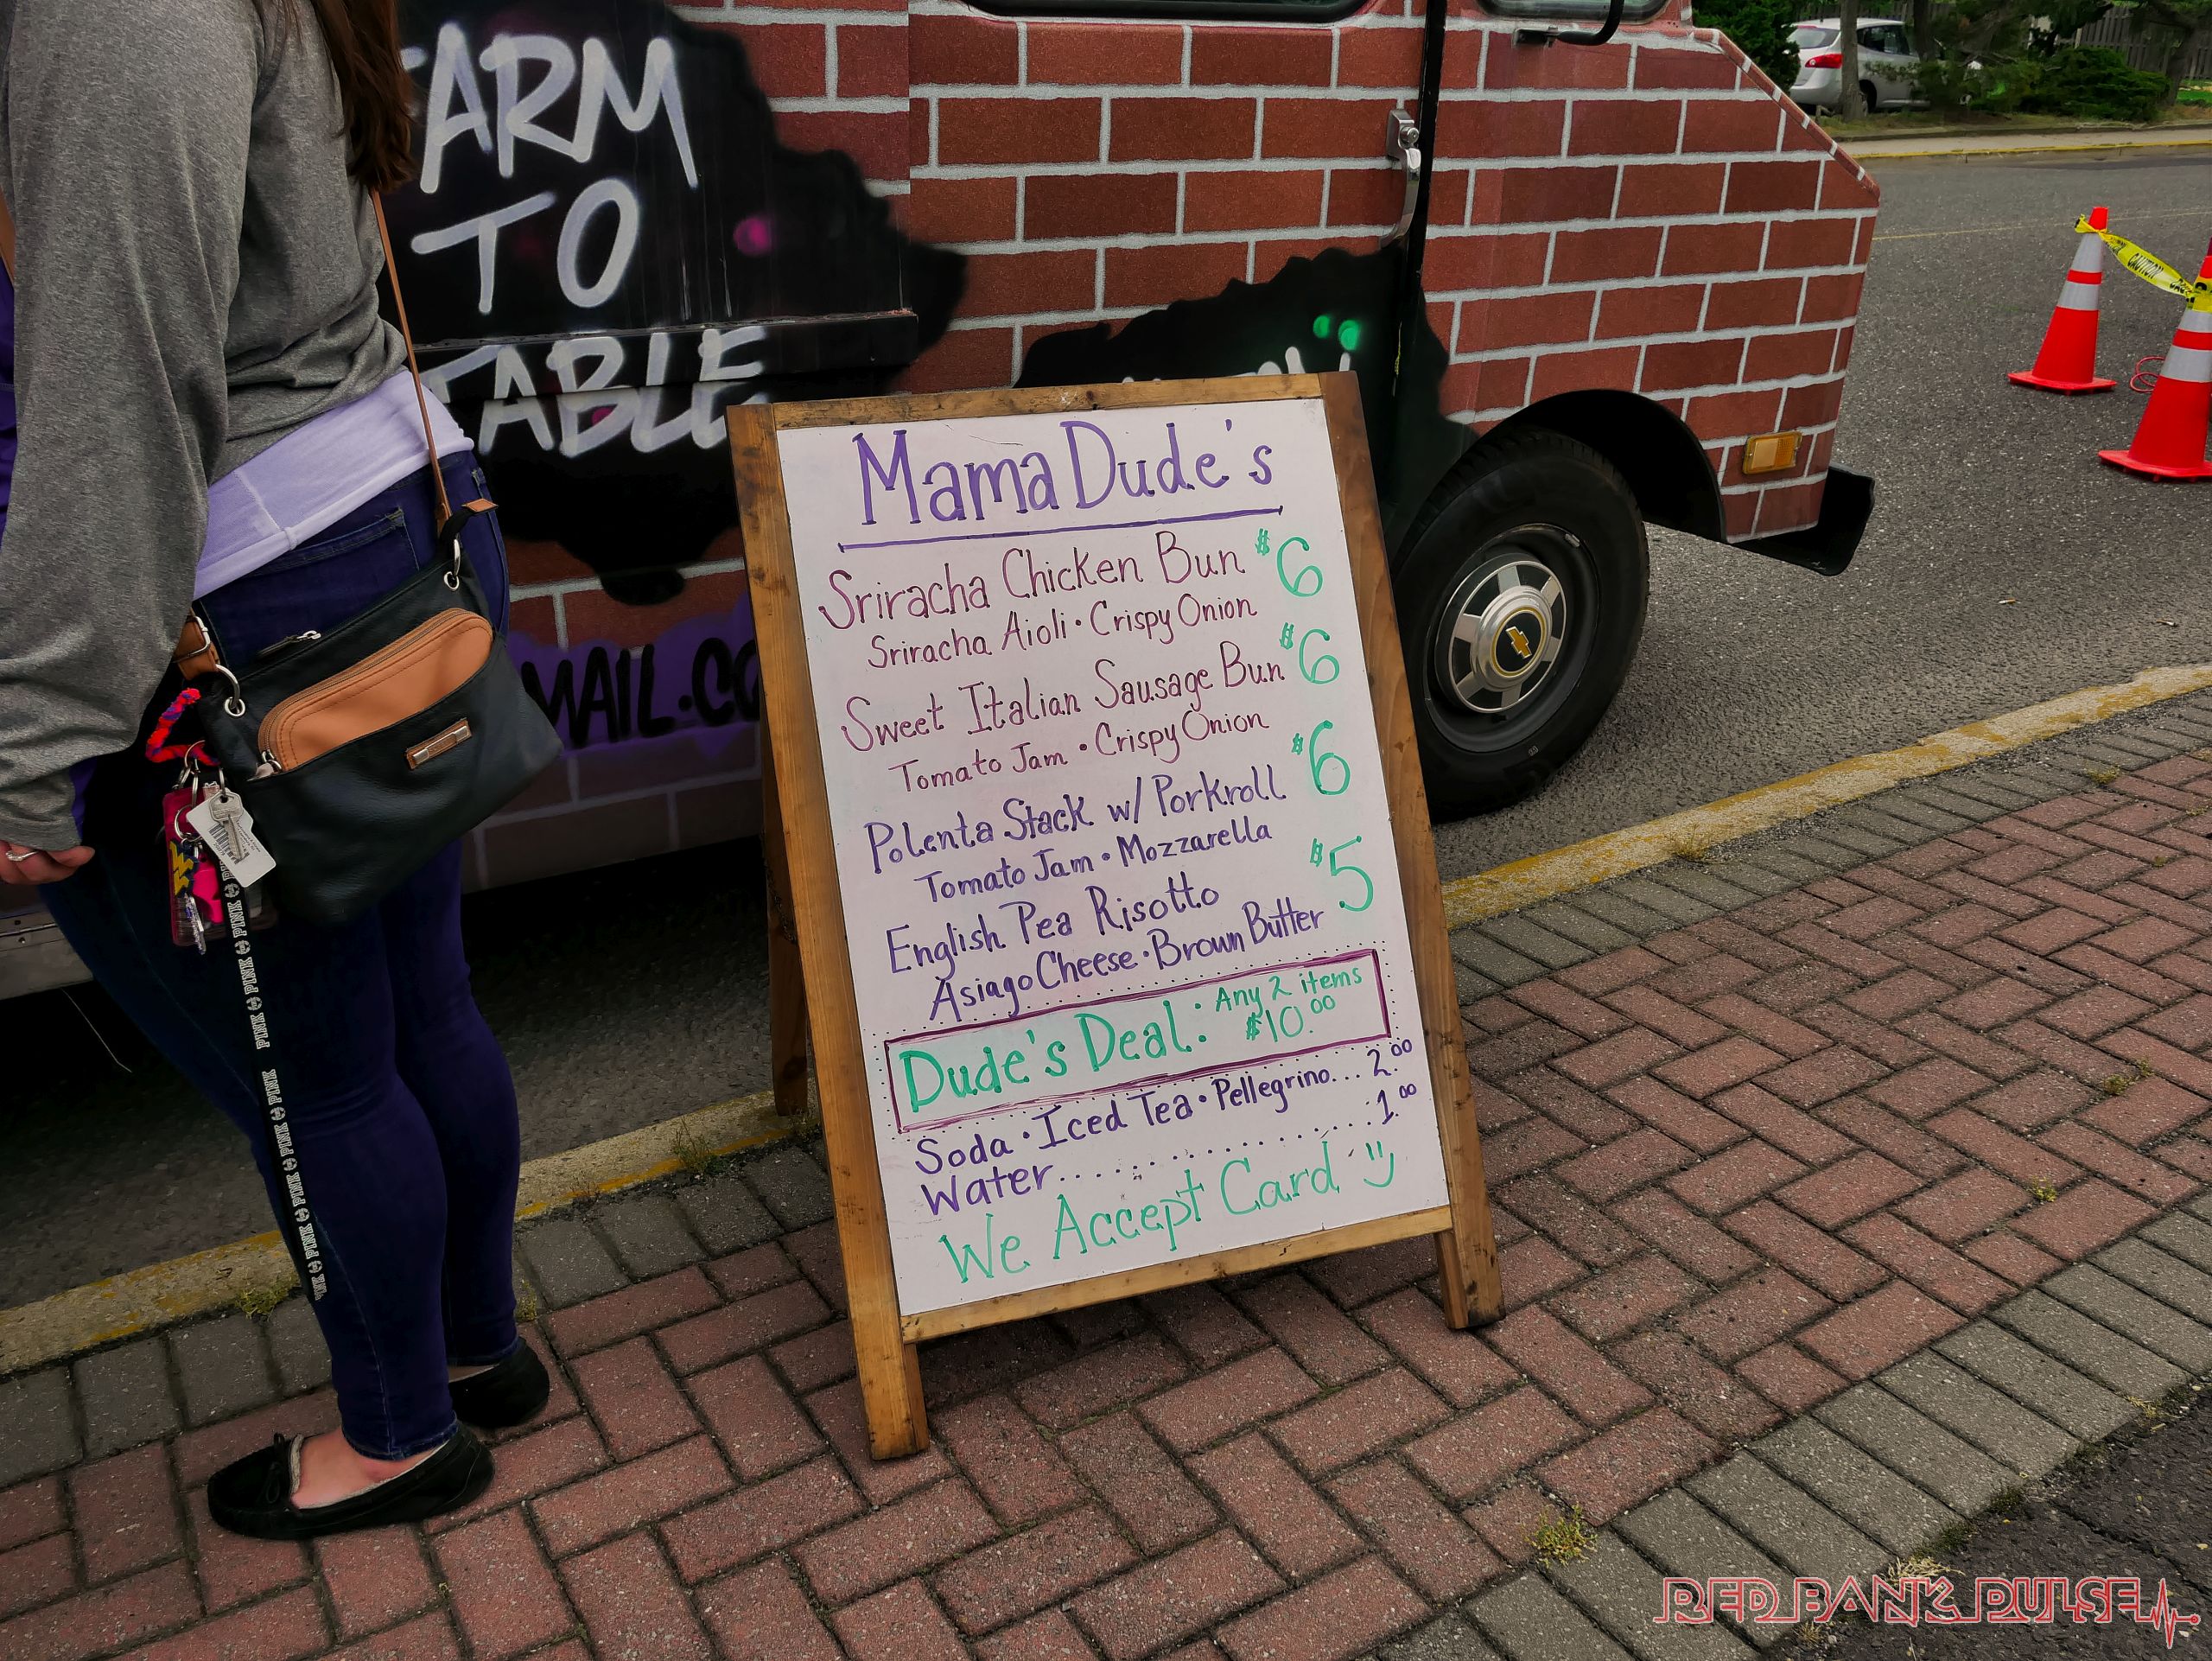 FARM
TO
TABLE
MAIL.CO
Mama Dude's
Sriracha Chicken Bun $6
Sriracha Aioli • Crispy Onion
Sweet Italian Sausage Bun $6
Tomato Jam • Crispy Onion
Polenta Stack w/ Porkroll $6
Tomato Jam • Mozzarella
English Pea Risotto $5
Asiago Cheese • Brown Butter
Dude's Deal: Any 2 items $10.00
Soda • Iced Tea • Pellegrino... 2.00
Water............... 1.00
We Accept Card :)
PINK PINK PINK PINK PINK PINK PINK
CAUTION
RED BANK PULSE